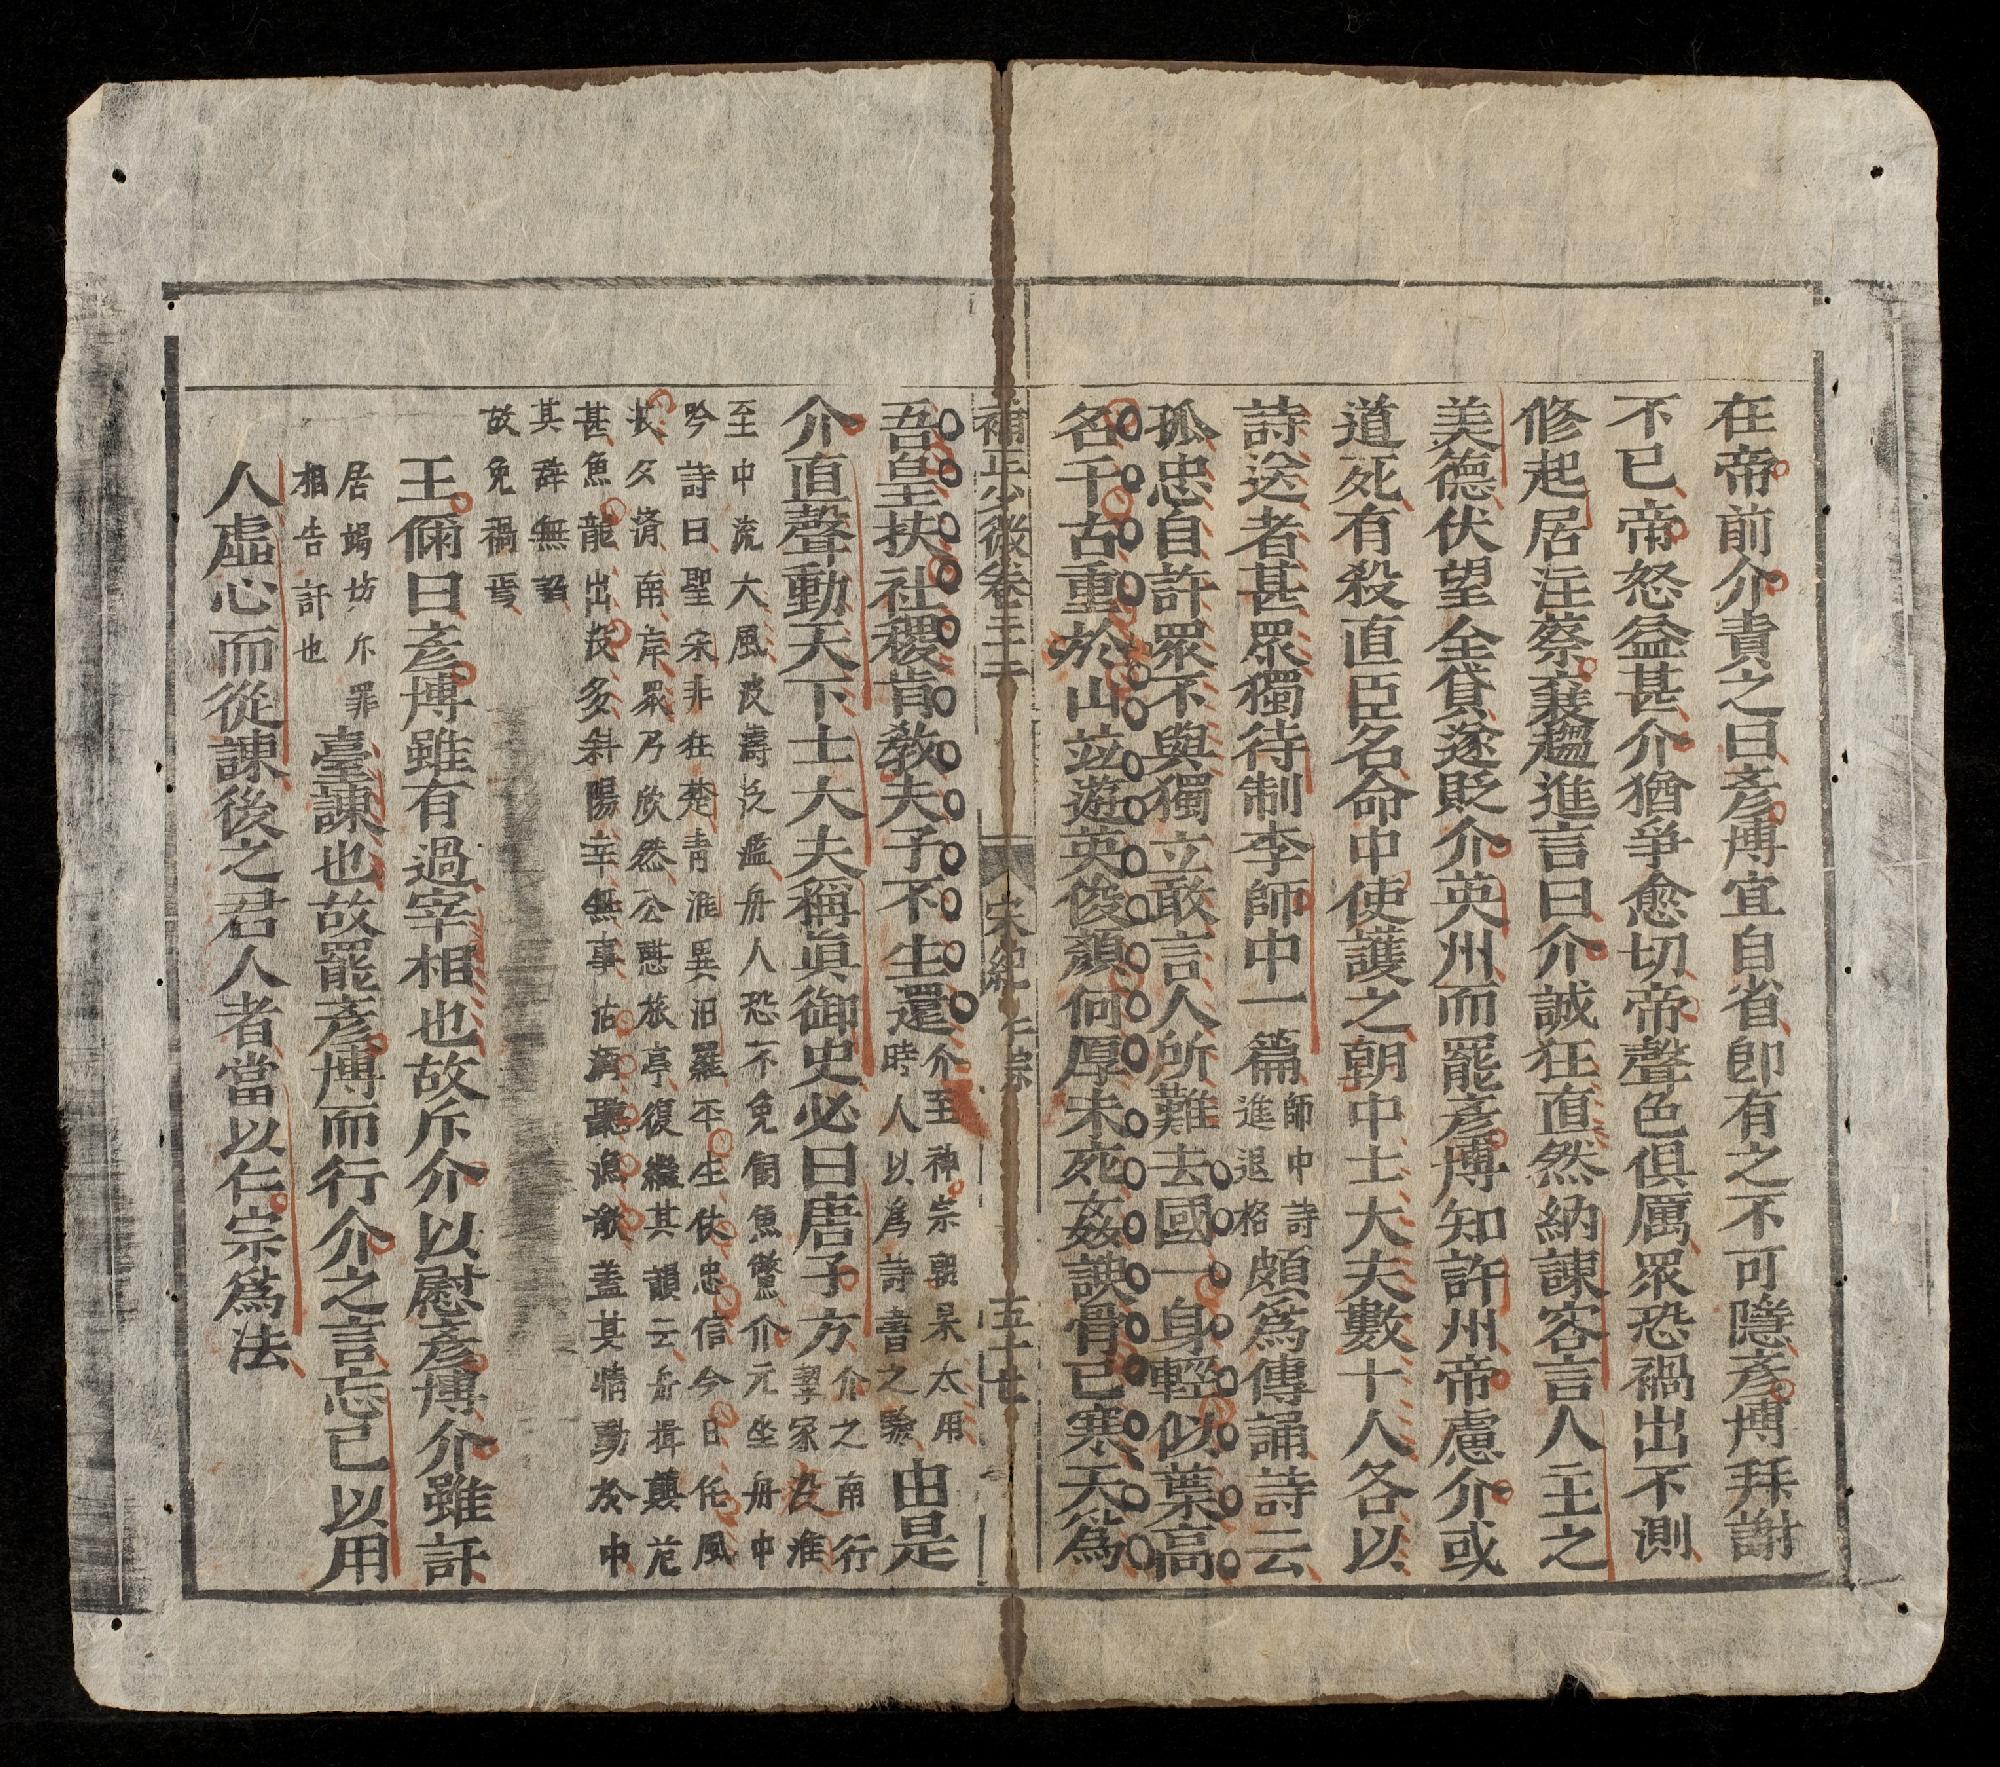 在帝前介責之曰彥博宜自省卽有之不可隱彥博拜謝
不已帝怒益甚介猶爭愈切帝聲色俱厲眾恐禍出不測
修起居注蔡襄趨進言曰介誠狂直然納諫容言人主之
美德伏望全貸遂貶介英州而罷彥博知許州帝慮介或
道死有殺直臣名命中使護之朝中士大夫數十人各以
詩送者甚眾獨待制李師中一篇師中詩進退格頗爲傳誦詩云
孤忠自許眾不與獨立敢言人所難去國一身輕似葉高
名千古重於山竝遊英俊顏何厚未死姦諛骨已寒天爲
補正少微卷三十 宋紀仁宗 五十七
吾皇扶社稷肯教夫子不生還介至神宗朝杲太用時人以爲詩書之驗由是
介直聲動天下士大夫稱眞御史必曰唐子方介之南行挈家渡淮
至中流大風波濤泛濫舟人恐不免飼魚鱉介元坐舟中
吟詩曰聖宋非狂楚青淮異汨羅平生仗忠信今日任風
波夕濟南岸眾乃欣然公憇旅亭復繼其韻云舟揖颠范
甚魚龍出沒多斜陽幸無事沽酒聽漁歌蓋其情動於中
其辭無
故免禍焉
王偁曰彥博雖有過宰相也故斥介以慰彥博介雖訐
居謁坊斥罪相告訐也臺諫也故罷彥博而行介之言忘己以用
人虛心而從諫後之君人者當以仁宗爲法